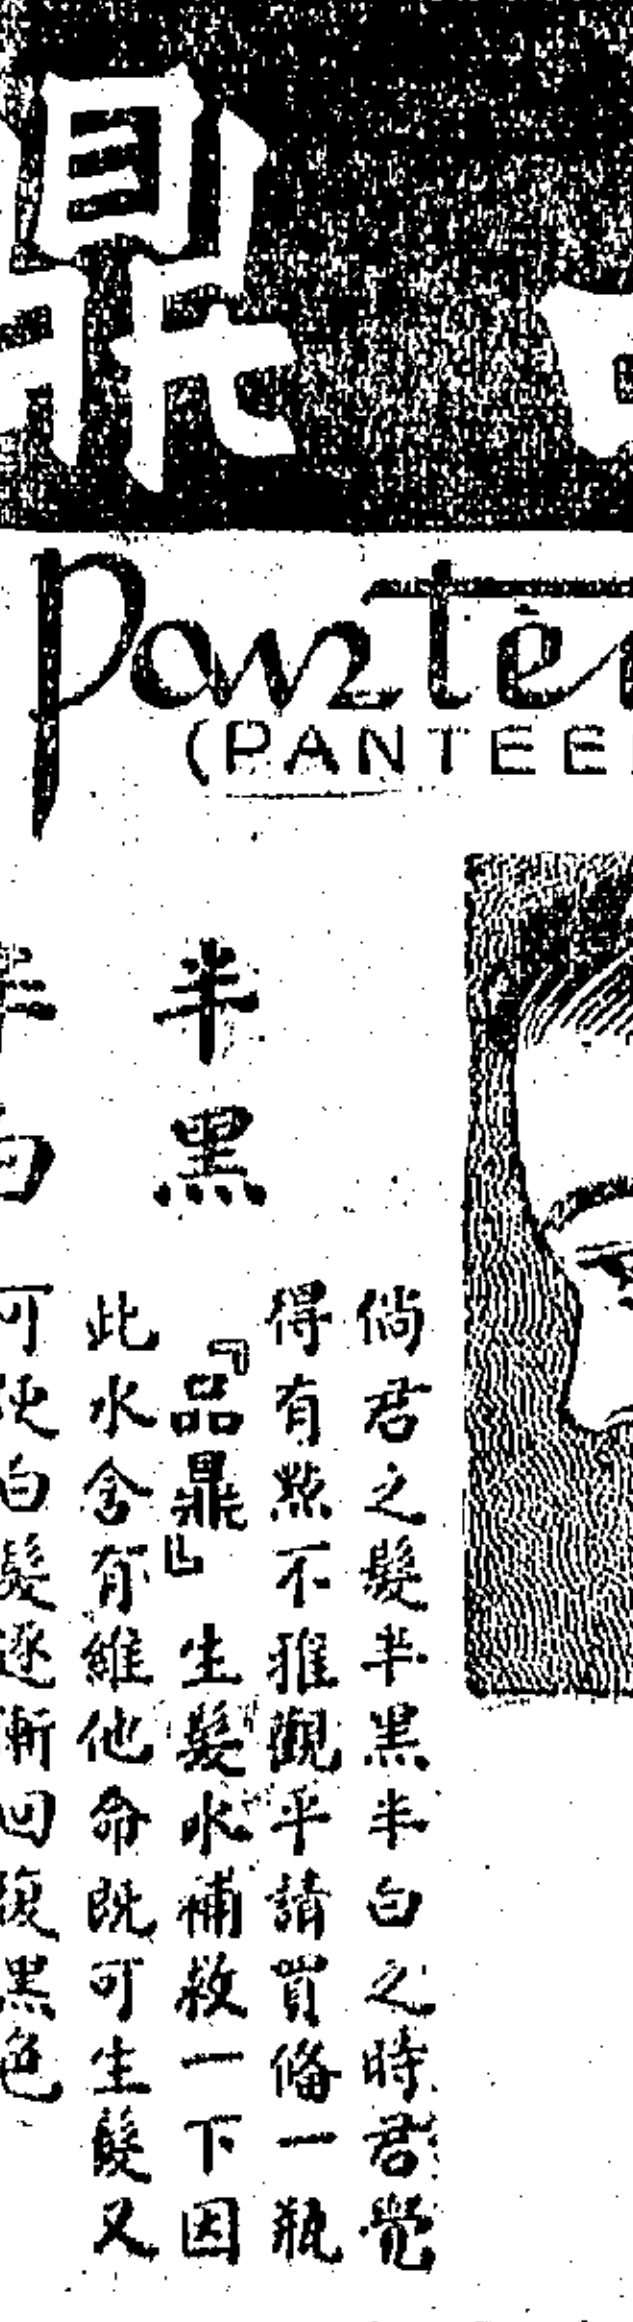 鼎
Pantè
(PANTEE
半黑
半白
倘君之髮半黑半白之時君覺
得有點不雅觀乎請買俻一瓶
『品鼎』生髮水補救一下因
此水含有維他命既可生髮又
可使白髮逐漸回復黑色